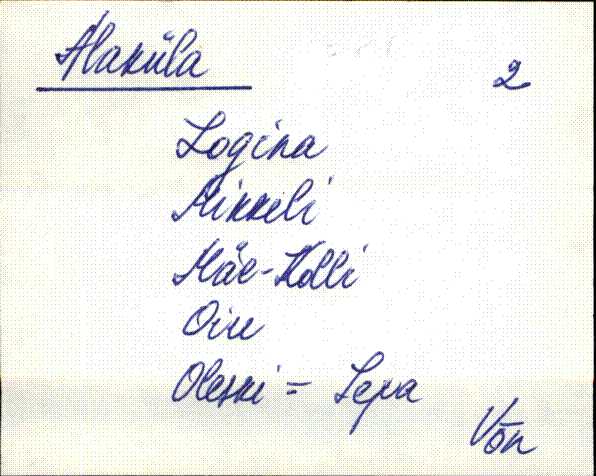 Alaküla 2
Logina
Mikkeli
Mäe-Kolli
Oiu
Oleski = Lepa
Võn